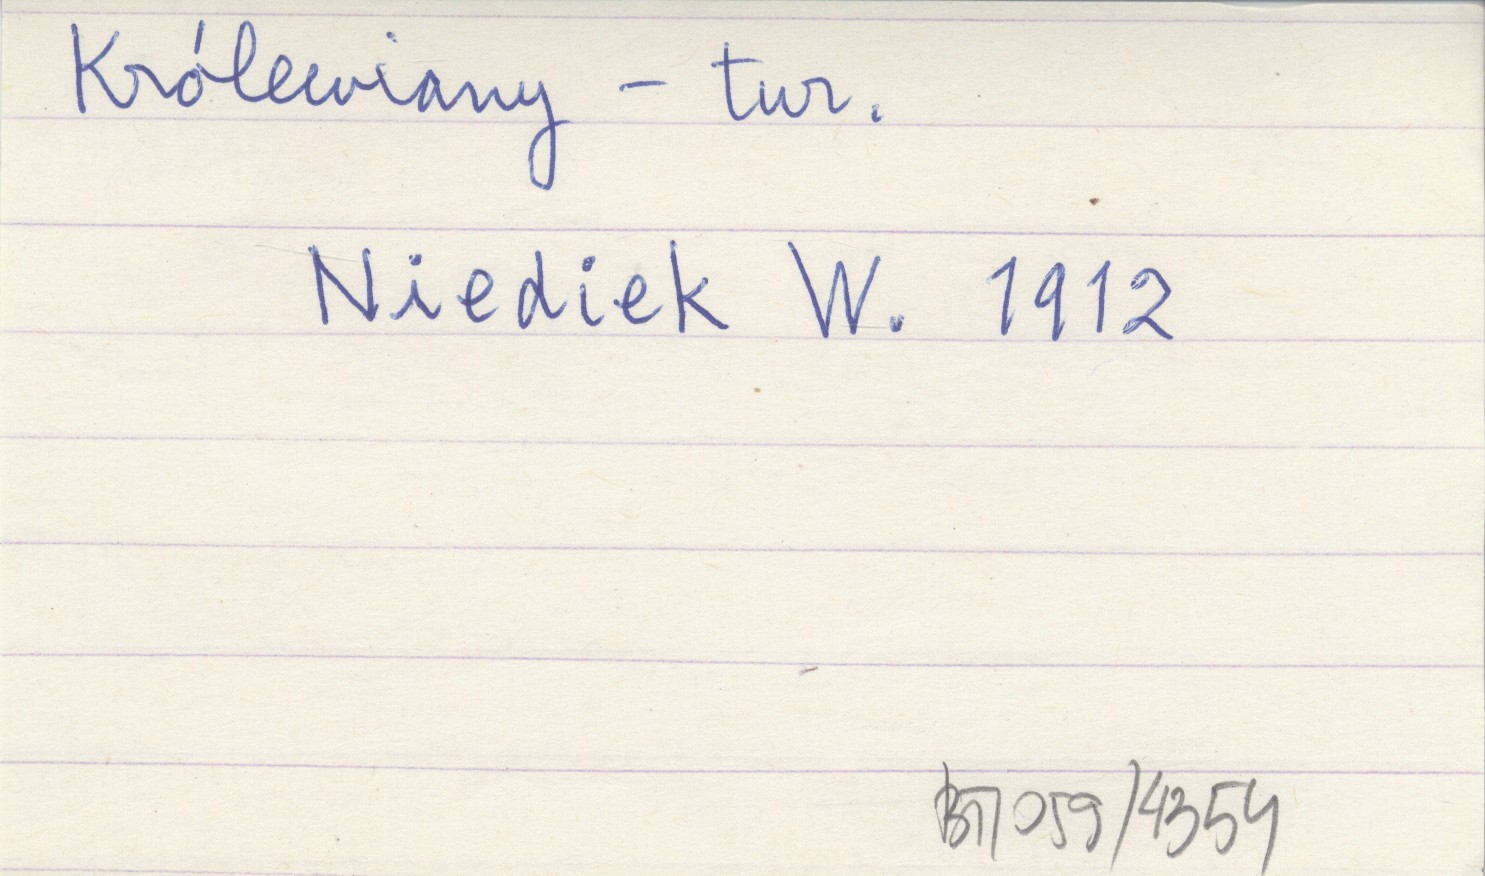 Królewiany - tur.
Niediek W. 1912
BT/059/4354